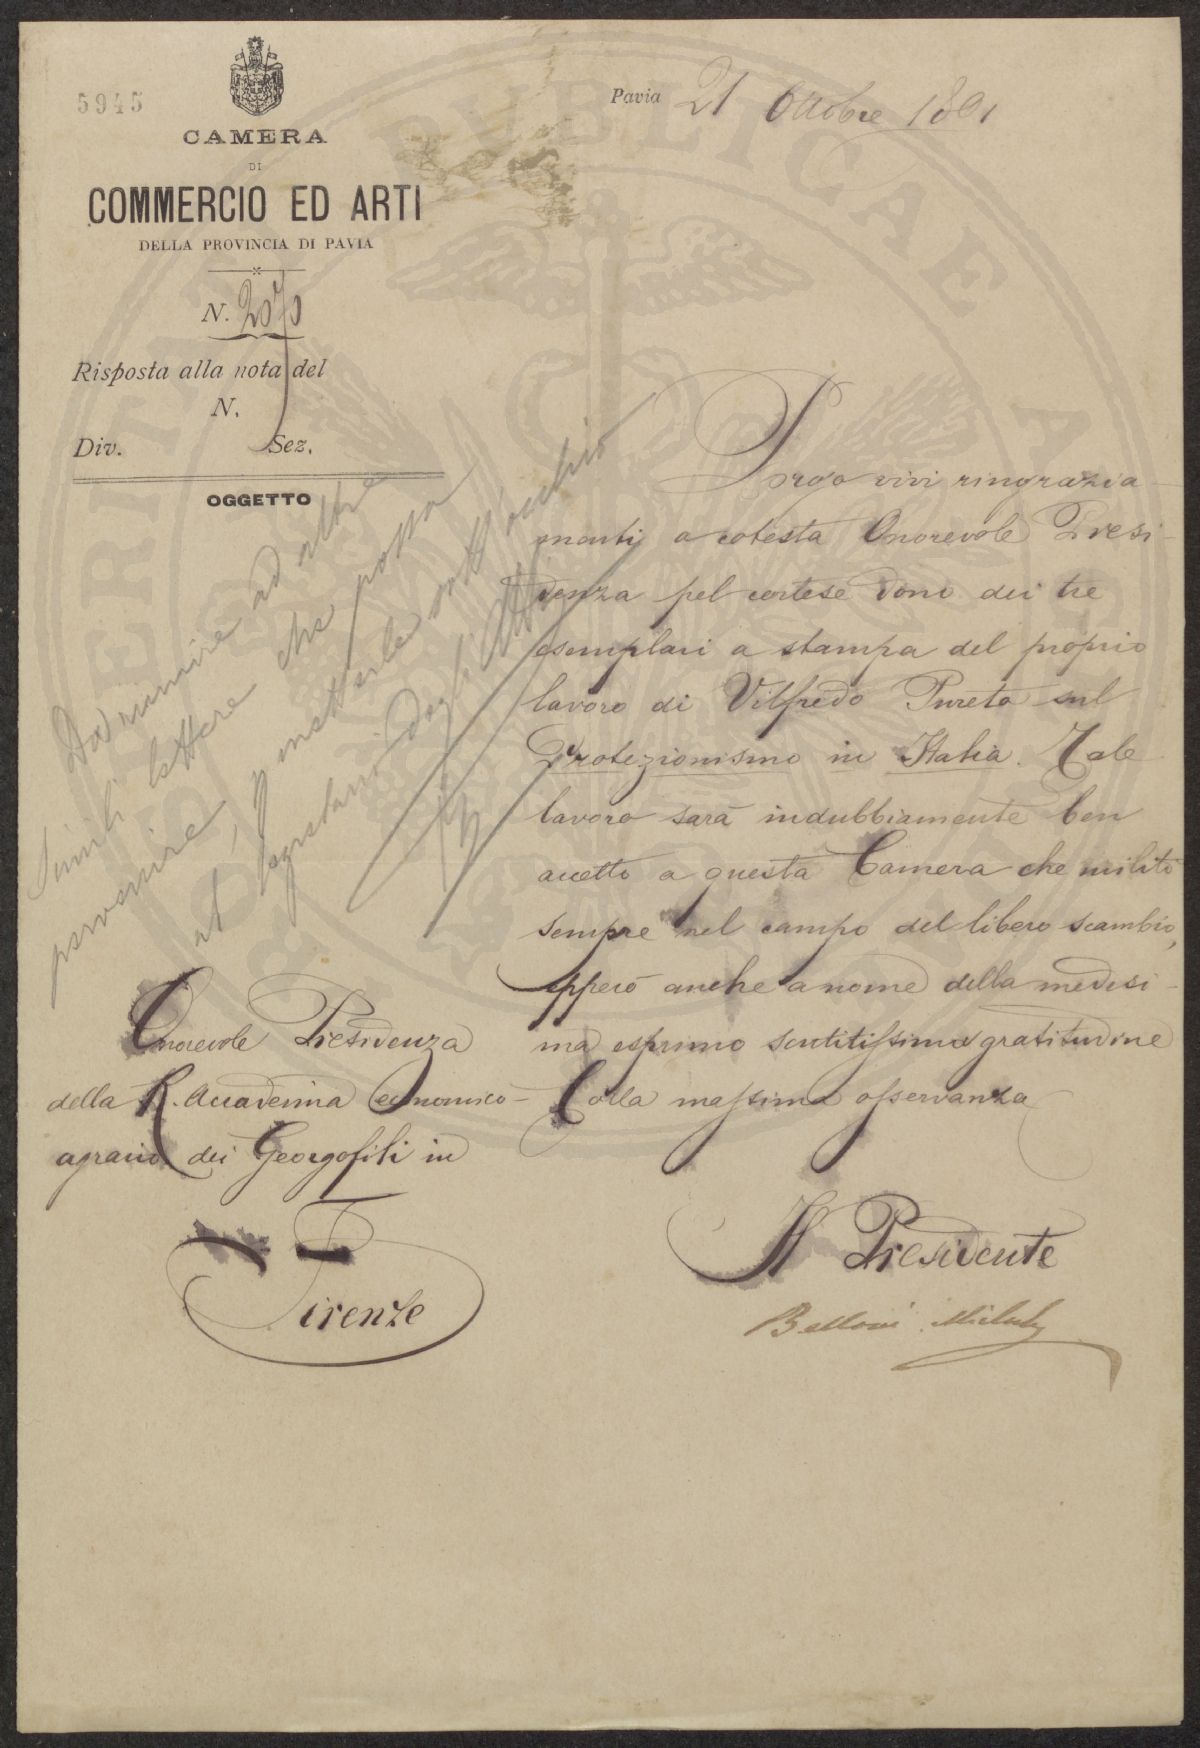 5945
CAMERA
DI
COMMERCIO ED ARTI
DELLA PROVINCIA DI PAVIA
N. 2070
Risposta alla nota del
N.
Div. Sez.
OGGETTO
Pavia 21 Ottobre 1891
Porgo vivi ringrazia-
menti a cotesta Onorevole Presi-
denza pel cortese dono dei tre
esemplari a stampa del proprio
lavoro di Vilfredo Pareto sul
Protezionismo in Italia. Tale
lavoro sarà indubbiamente ben
accetto a questa Camera che militò
sempre nel campo del libero scambio,
epperò anche a nome della medesi-
ma esprimo sentitissima gratitudine
Colla massima osservanza
Il Presidente
Belloni
Onorevole Presidenza
della R. Accademia economico-
agraria dei Georgofili in
Firenze
Da riunire ad altre
simili lettere che possa
pervenire, e metterle sott'occhio
al segretario degli Atti